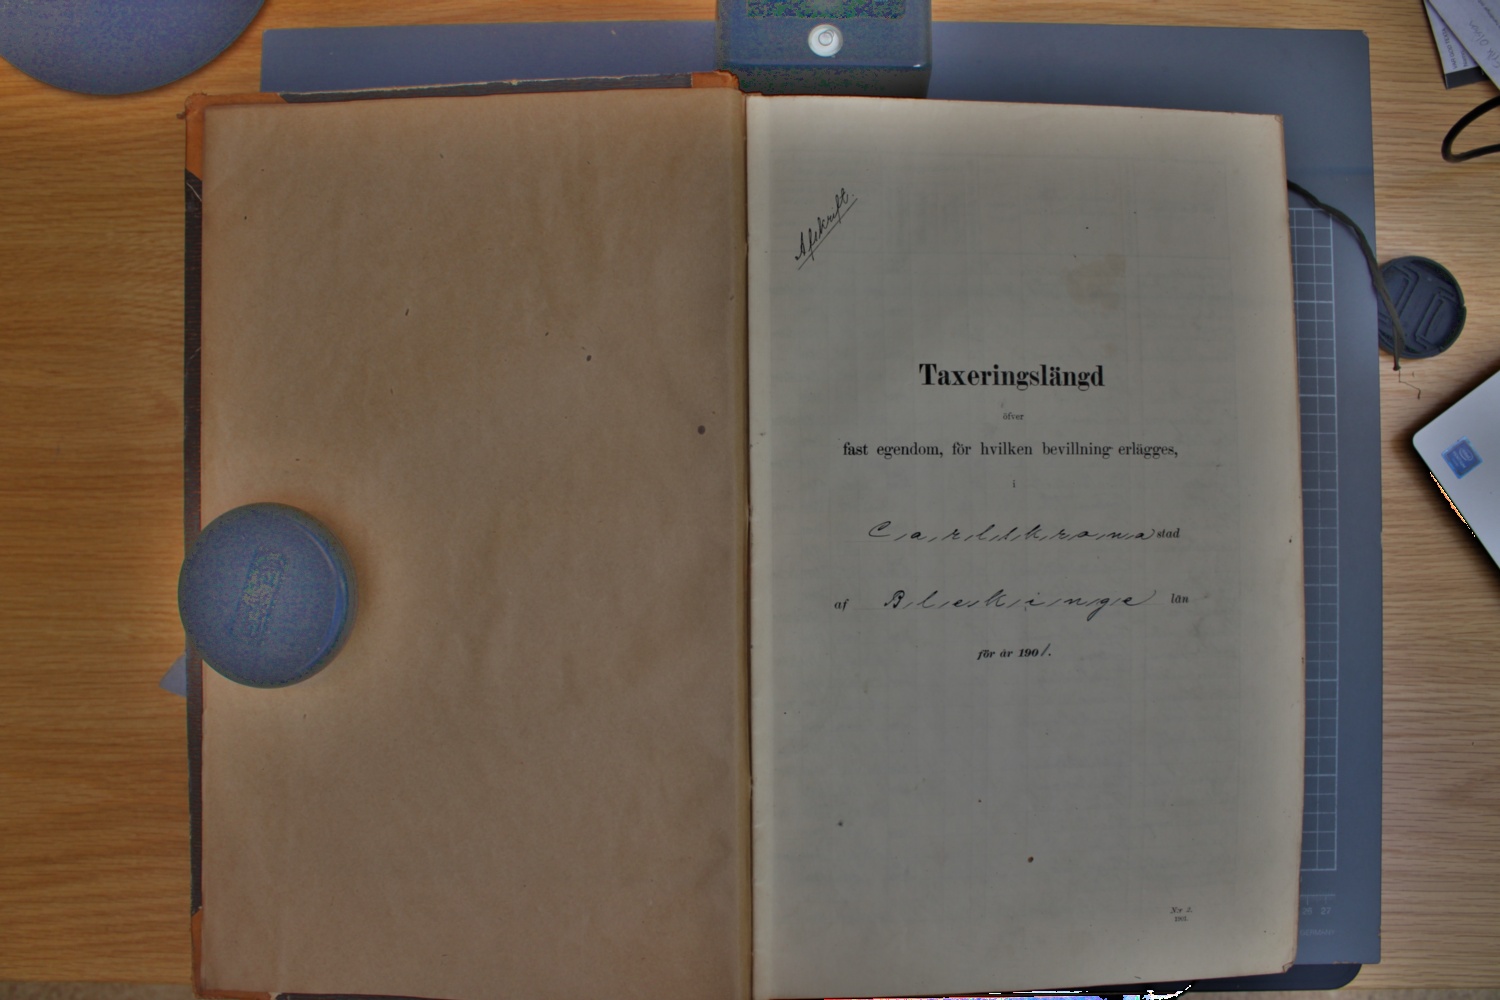 Afskrift.
Taxeringslängd
öfver
fast egendom, för hvilken bevillning erlägges,
i
Carlskrona stad
af Blekinge län
för år 1901.
N:r 2.
26 27